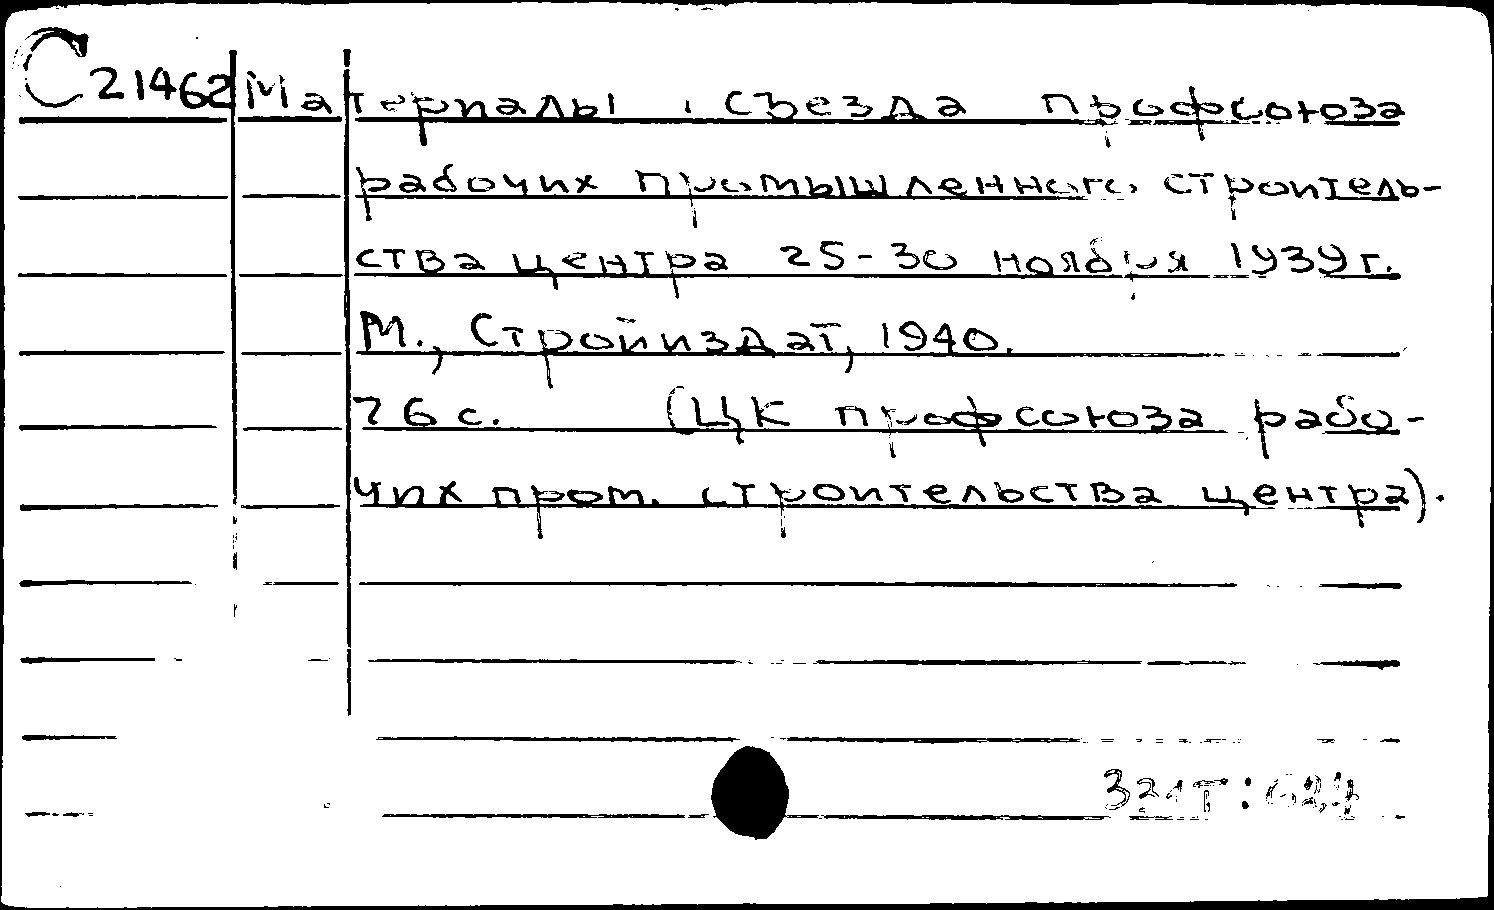 С 21462 Материалы съезда профсоюза
рабочих промышленного строитель-
ства центра 25-30 ноября 1939 г.
М., Стройиздат, 1940.
76 с. (ЦК профсоюза рабо-
чих пром. строительства центра).